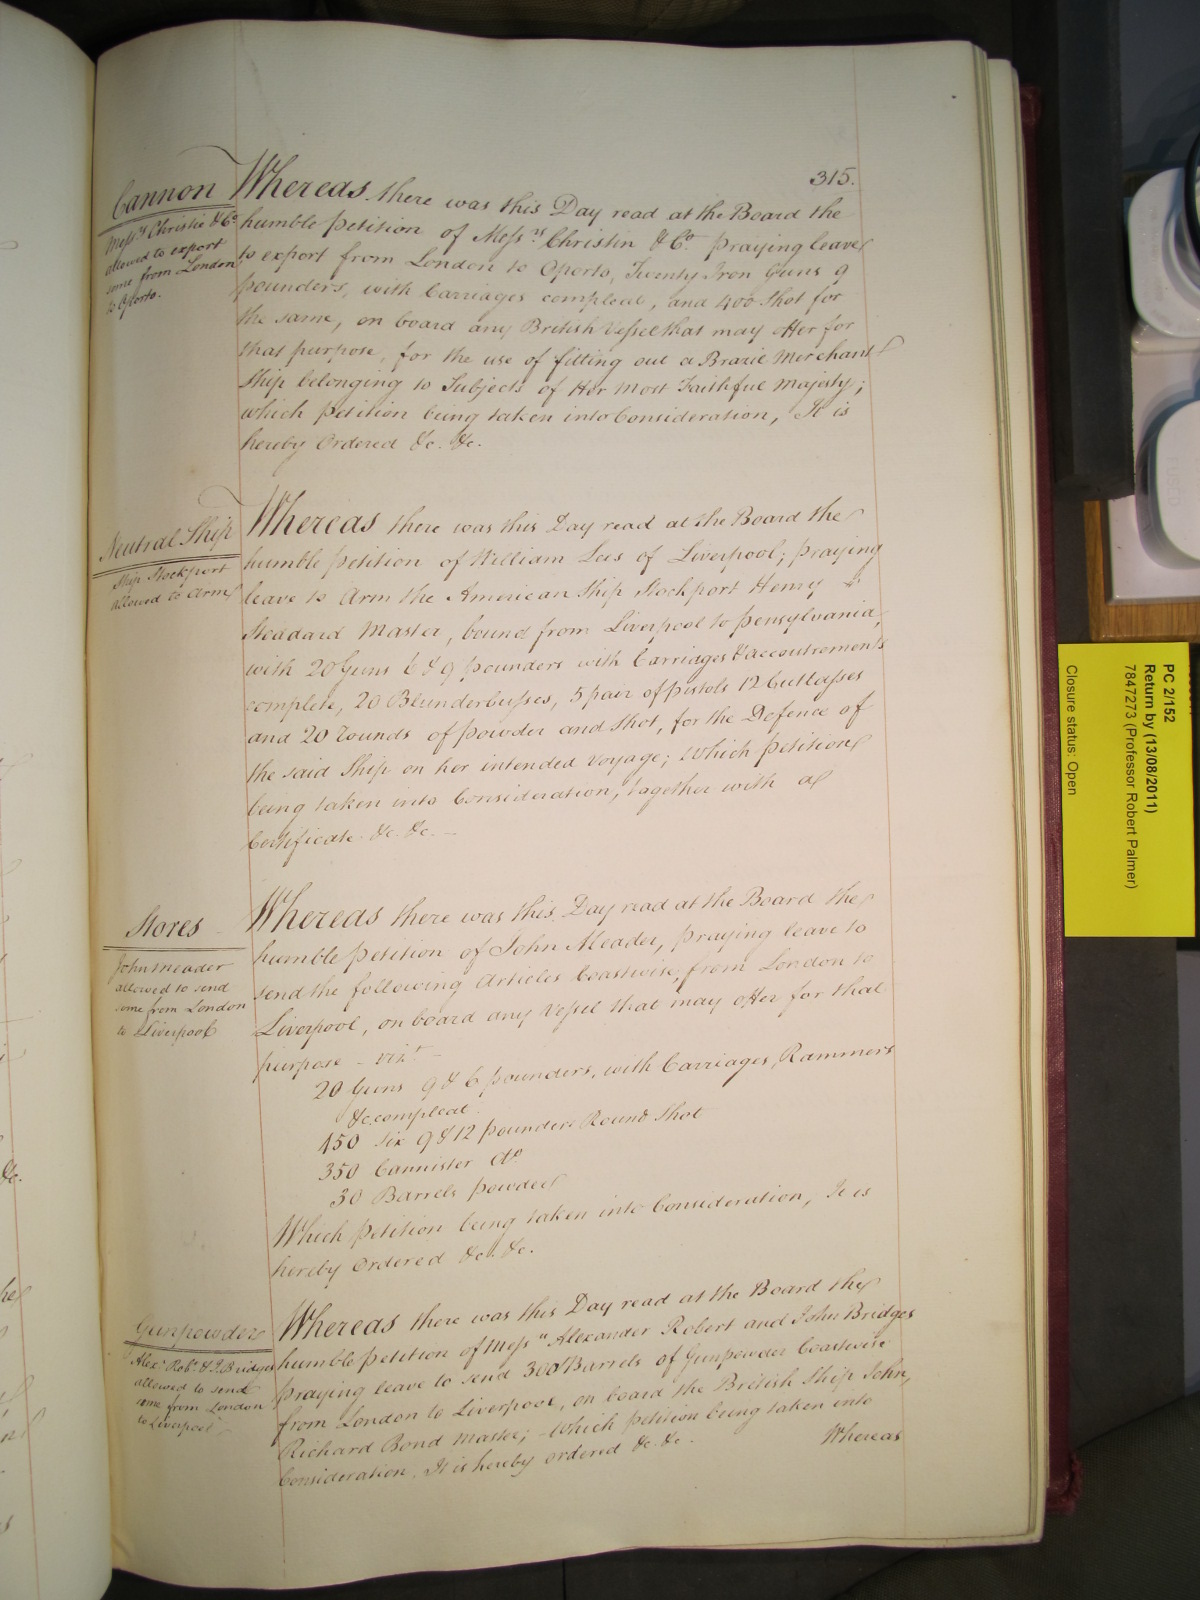 315.
Cannon
Mess.rs Christie & Co
allowed to export
some from London
to Oporto.
Whereas there was this Day read at the Board the
humble Petition of Mess.rs Christin & Co. praying leave
to export from London to Oporto, Twenty Iron Guns 9
pounders, with Carriages compleat, and 400 Shot for
the same, on board any British Vessel that may offer for
that purpose, for the use of fitting out a Brazil Merchant
Ship belonging to Subjects of Her Most Faithful Majesty;
which Petition being taken into Consideration, It is
hereby Ordered &c. &c.
Neutral Ship
Ship Stockport
allowed to Arm
Whereas there was this Day read at the Board the
humble Petition of William Lees of Liverpool; praying
leave to Arm the American Ship Stockport Henry
Stoddard Master, bound from Liverpool to Pensylvania,
with 20 Guns 6 & 9 pounders with Carriages & accoutrements
complete, 20 Blunderbusses, 5 pair of pistols 12 Cutlasses
and 20 rounds of powder and Shot, for the Defence of
the said Ship on her intended voyage; Which Petition
being taken into Consideration, together with a
Certificate &c. &c.
Stores
John Meader
allowed to send
some from London
to Liverpool
Whereas there was this Day read at the Board the
humble Petition of John Meader, praying leave to
send the following Articles Coastwise, from London to
Liverpool, on board any Vessel that may offer for that
purpose - vizt. -
20 Guns 9 & 6 pounders, with Carriages, Rammers
&c. compleat.
450 Six 9 & 12 pounders Round Shot
350 Cannister do
30 Barrels powder
Which Petition being taken into Consideration, It is
hereby Ordered &c. &c.
Gunpowder
Alexr. Robt. & J. Bridges
allowed to send
some from London
to Liverpool
Whereas there was this Day read at the Board the
humble Petition of Mess.rs Alexander Robert and John Bridges
praying leave to send 300 Barrels of Gunpowder Coastwise
from London to Liverpool, on board the British Ship John,
Richard Bond Master; - Which Petition being taken into
Consideration, It is hereby ordered &c. &c.
Whereas
PC 2/152
Return by (13/08/2011)
7847273 (Professor Robert Palmer)
Closure status: Open